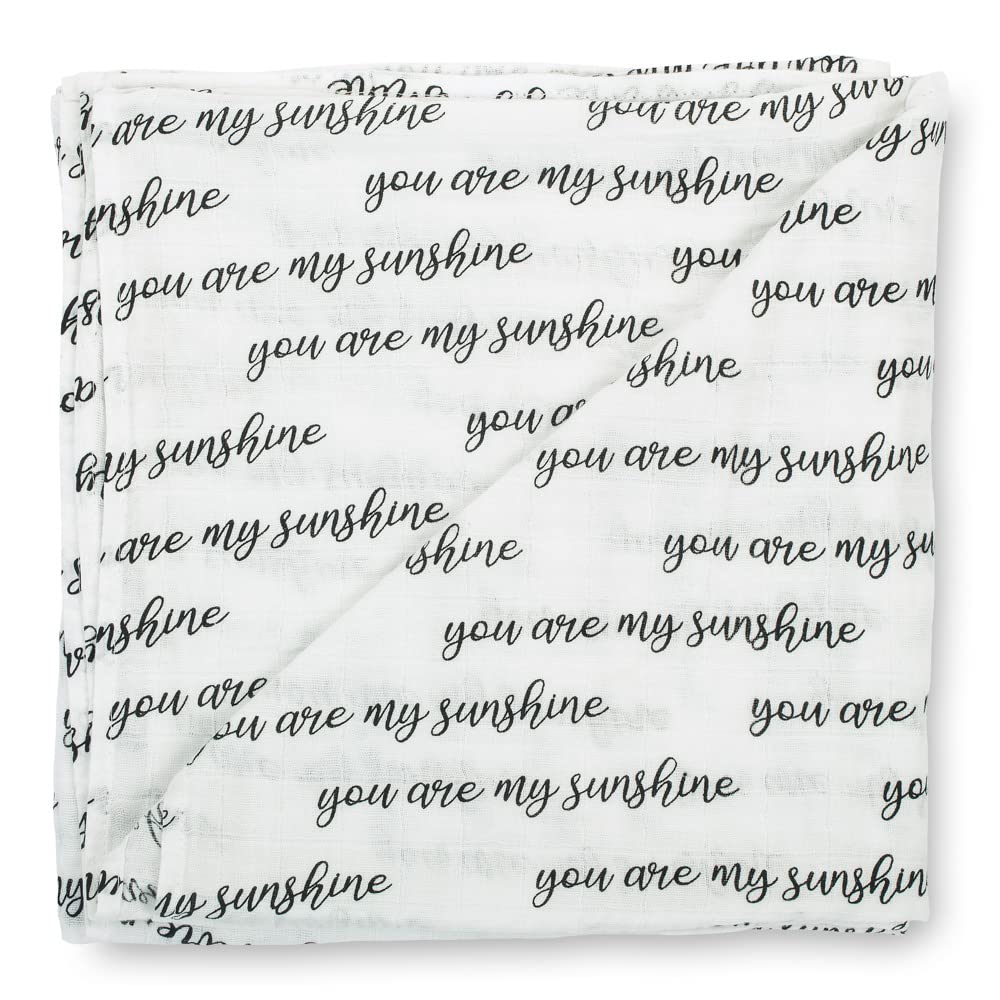 are my sunshine you are my
you are my sunshine
nshine
you are my sunshine you
you are
you are my sunshine
shine you
you
my sunshine
you are my sunshine
are my sunshine
shine you are my su
nshine
you are my sunshine
you are
are my sunshine you are
you are my sunshine
my sunshine you are my sunshin